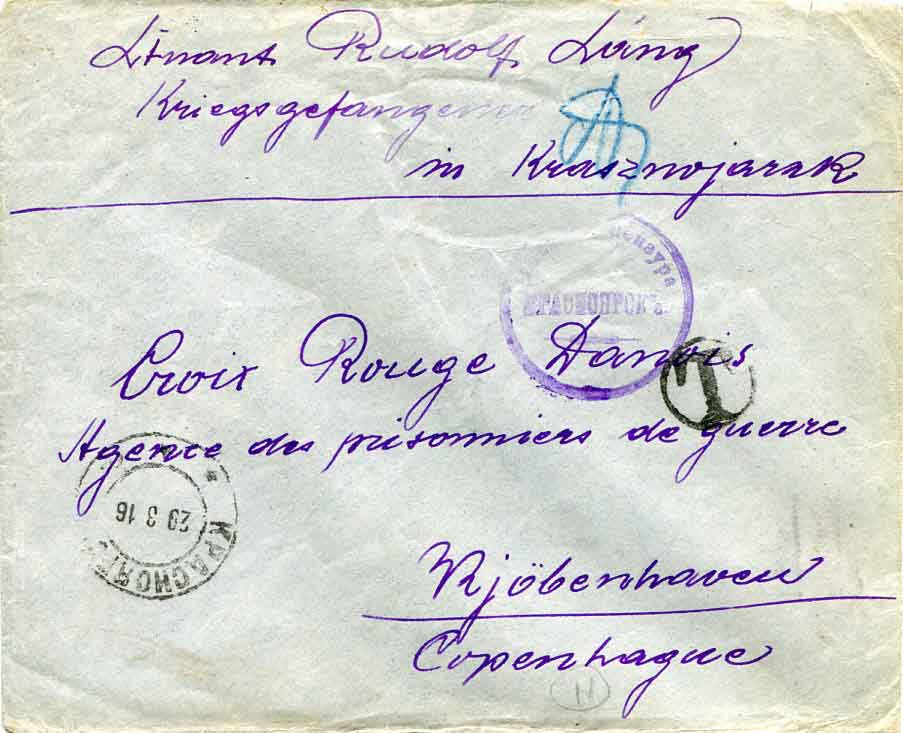 Ltnant Rudolf Láng
Kriegsgefangener
in Krasznojarsk
цензура
КРАСНОЯРСКЪ
T
Croix Rouge Danois
Agence des prisonniers de guerre
29 3 16
КРАСНОЯР
Kjöbenhaven
Copenhague
N